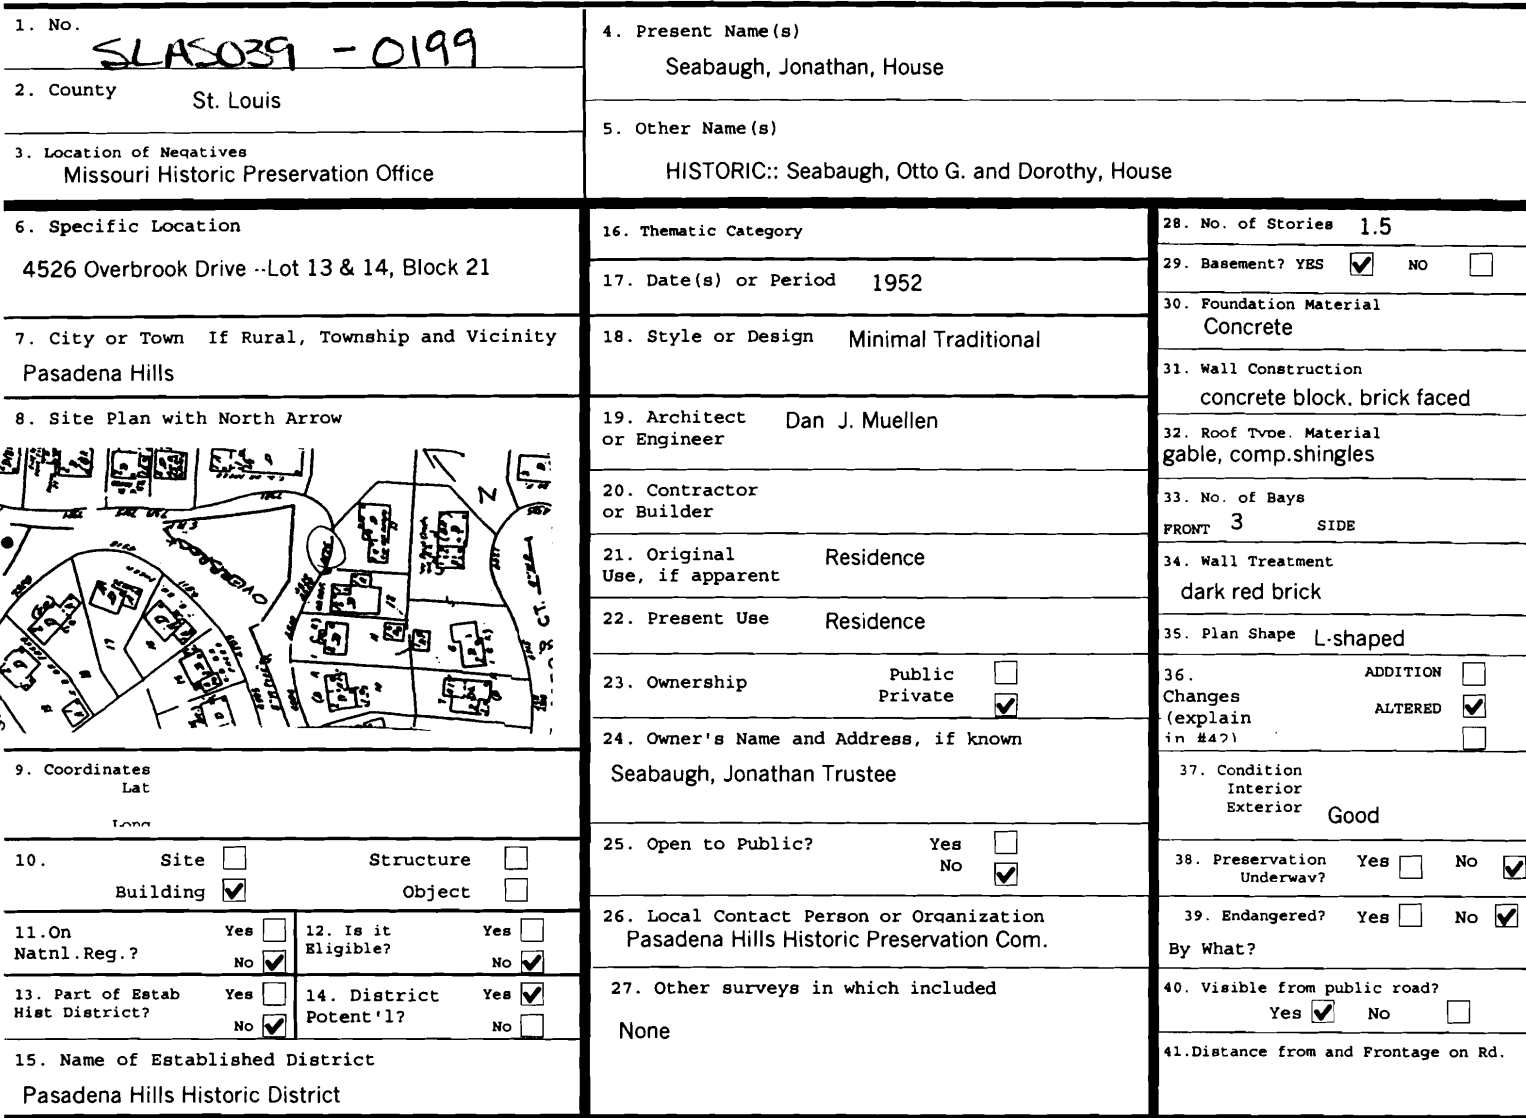 1. No.
SLAS039 - 0199
2. County St. Louis
3. Location of Negatives
Missouri Historic Preservation Office
4. Present Name(s)
Seabaugh, Jonathan, House
5. Other Name(s)
HISTORIC:: Seabaugh, Otto G. and Dorothy, House
6. Specific Location
4526 Overbrook Drive --Lot 13 & 14, Block 21
7. City or Town If Rural, Township and Vicinity
Pasadena Hills
8. Site Plan with North Arrow
N
9. Coordinates
Lat
Long
10. Site Structure
Building Object
11.On Yes
Natnl.Reg.? No
12. Is it Yes
Eligible? No
13. Part of Estab Yes
Hist District? No
14. District Yes
Potent'l? No
15. Name of Established District
Pasadena Hills Historic District
16. Thematic Category
17. Date(s) or Period 1952
18. Style or Design Minimal Traditional
19. Architect Dan J. Muellen
or Engineer
20. Contractor
or Builder
21. Original Residence
Use, if apparent
22. Present Use Residence
23. Ownership Public
Private
24. Owner's Name and Address, if known
Seabaugh, Jonathan Trustee
25. Open to Public? Yes
No
26. Local Contact Person or Organization
Pasadena Hills Historic Preservation Com.
27. Other surveys in which included
None
28. No. of Stories 1.5
29. Basement? YES NO
30. Foundation Material
Concrete
31. Wall Construction
concrete block, brick faced
32. Roof Type. Material
gable, comp.shingles
33. No. of Bays
FRONT 3 SIDE
34. Wall Treatment
dark red brick
35. Plan Shape L-shaped
36. ADDITION
Changes ALTERED
(explain
in #42)
37. Condition
Interior
Exterior Good
38. Preservation Yes No
Underway?
39. Endangered? Yes No
By What?
40. Visible from public road?
Yes No
41.Distance from and Frontage on Rd.